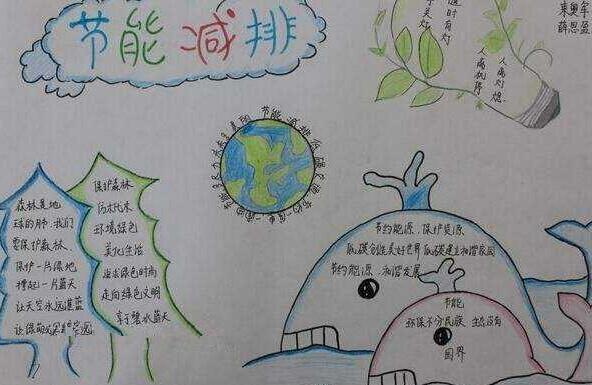 节能减排
随时有灯
手关灯
人离灯熄
人离机停
东奥军
薛思盈
节能减排低碳生活
森林是地
球的肺:我们
要保护森林
保护一片绿地
撑起一片蓝天
让天空永远湛蓝
保护森林
防木比木
环境绿色
美化生活
追求绿色时尚
走向绿色文明
享丁碧水蓝天
节约能源,保护资源
低碳创造美好世界 低碳建立和谐家园
节约能源,和谐发展
节能
环保不分民族 生态没有
国界